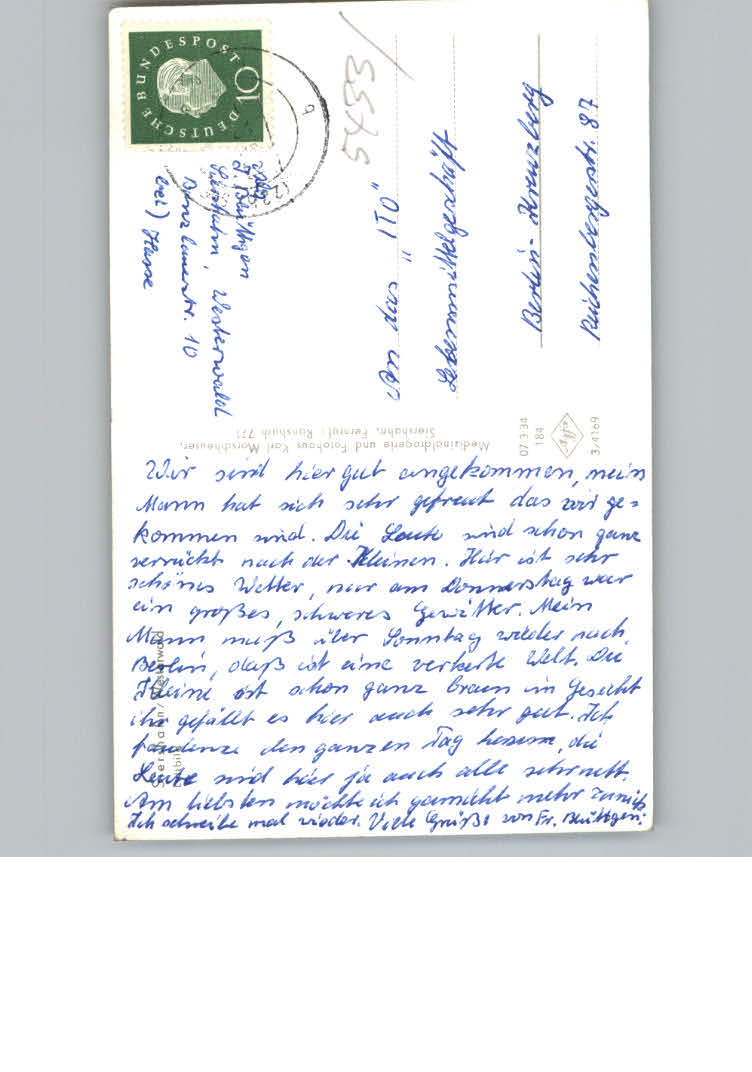 DEUTSCHE BUNDESPOST
10
5533
Abs.
Beuthgen
Siershahn, Westerwald
Bunzlauerstr. 10
bei) Hasse
An das "ITO"
Lebensmittelgeschäft
Berlin-Kreuzberg
Reichenbergerstr. 87
Medizinaldrogerie und Fotohaus Karl Marschheuser,
Siershahn, Fernruf: Ransbach 771
07 3 34
184
Agfa
3/4169
Siershahn/Westerwald
Wir sind hier gut angekommen, mein
Mann hat sich sehr gefreut das wir ge=
kommen sind. Die Leute sind schon ganz
verrückt nach der Kleinen. Hier ist sehr
schönes Wetter, nur am Donnerstag war
ein großes, schweres Gewitter. Mein
Mann muß über Sonntag wieder nach
Berlin, daß ist eine verkerte Welt. Die
Kleine ist schon ganz braun im Gesicht
ihr gefällt es hier auch sehr gut. Ich
faulenze den ganzen Tag herum, die
Leute sind hier ja auch alle sehr nett.
Am liebsten möchte ich garnicht mehr zurück
Ich schreibe mal wieder. Viele Grüße von Fr. Beuthgen.